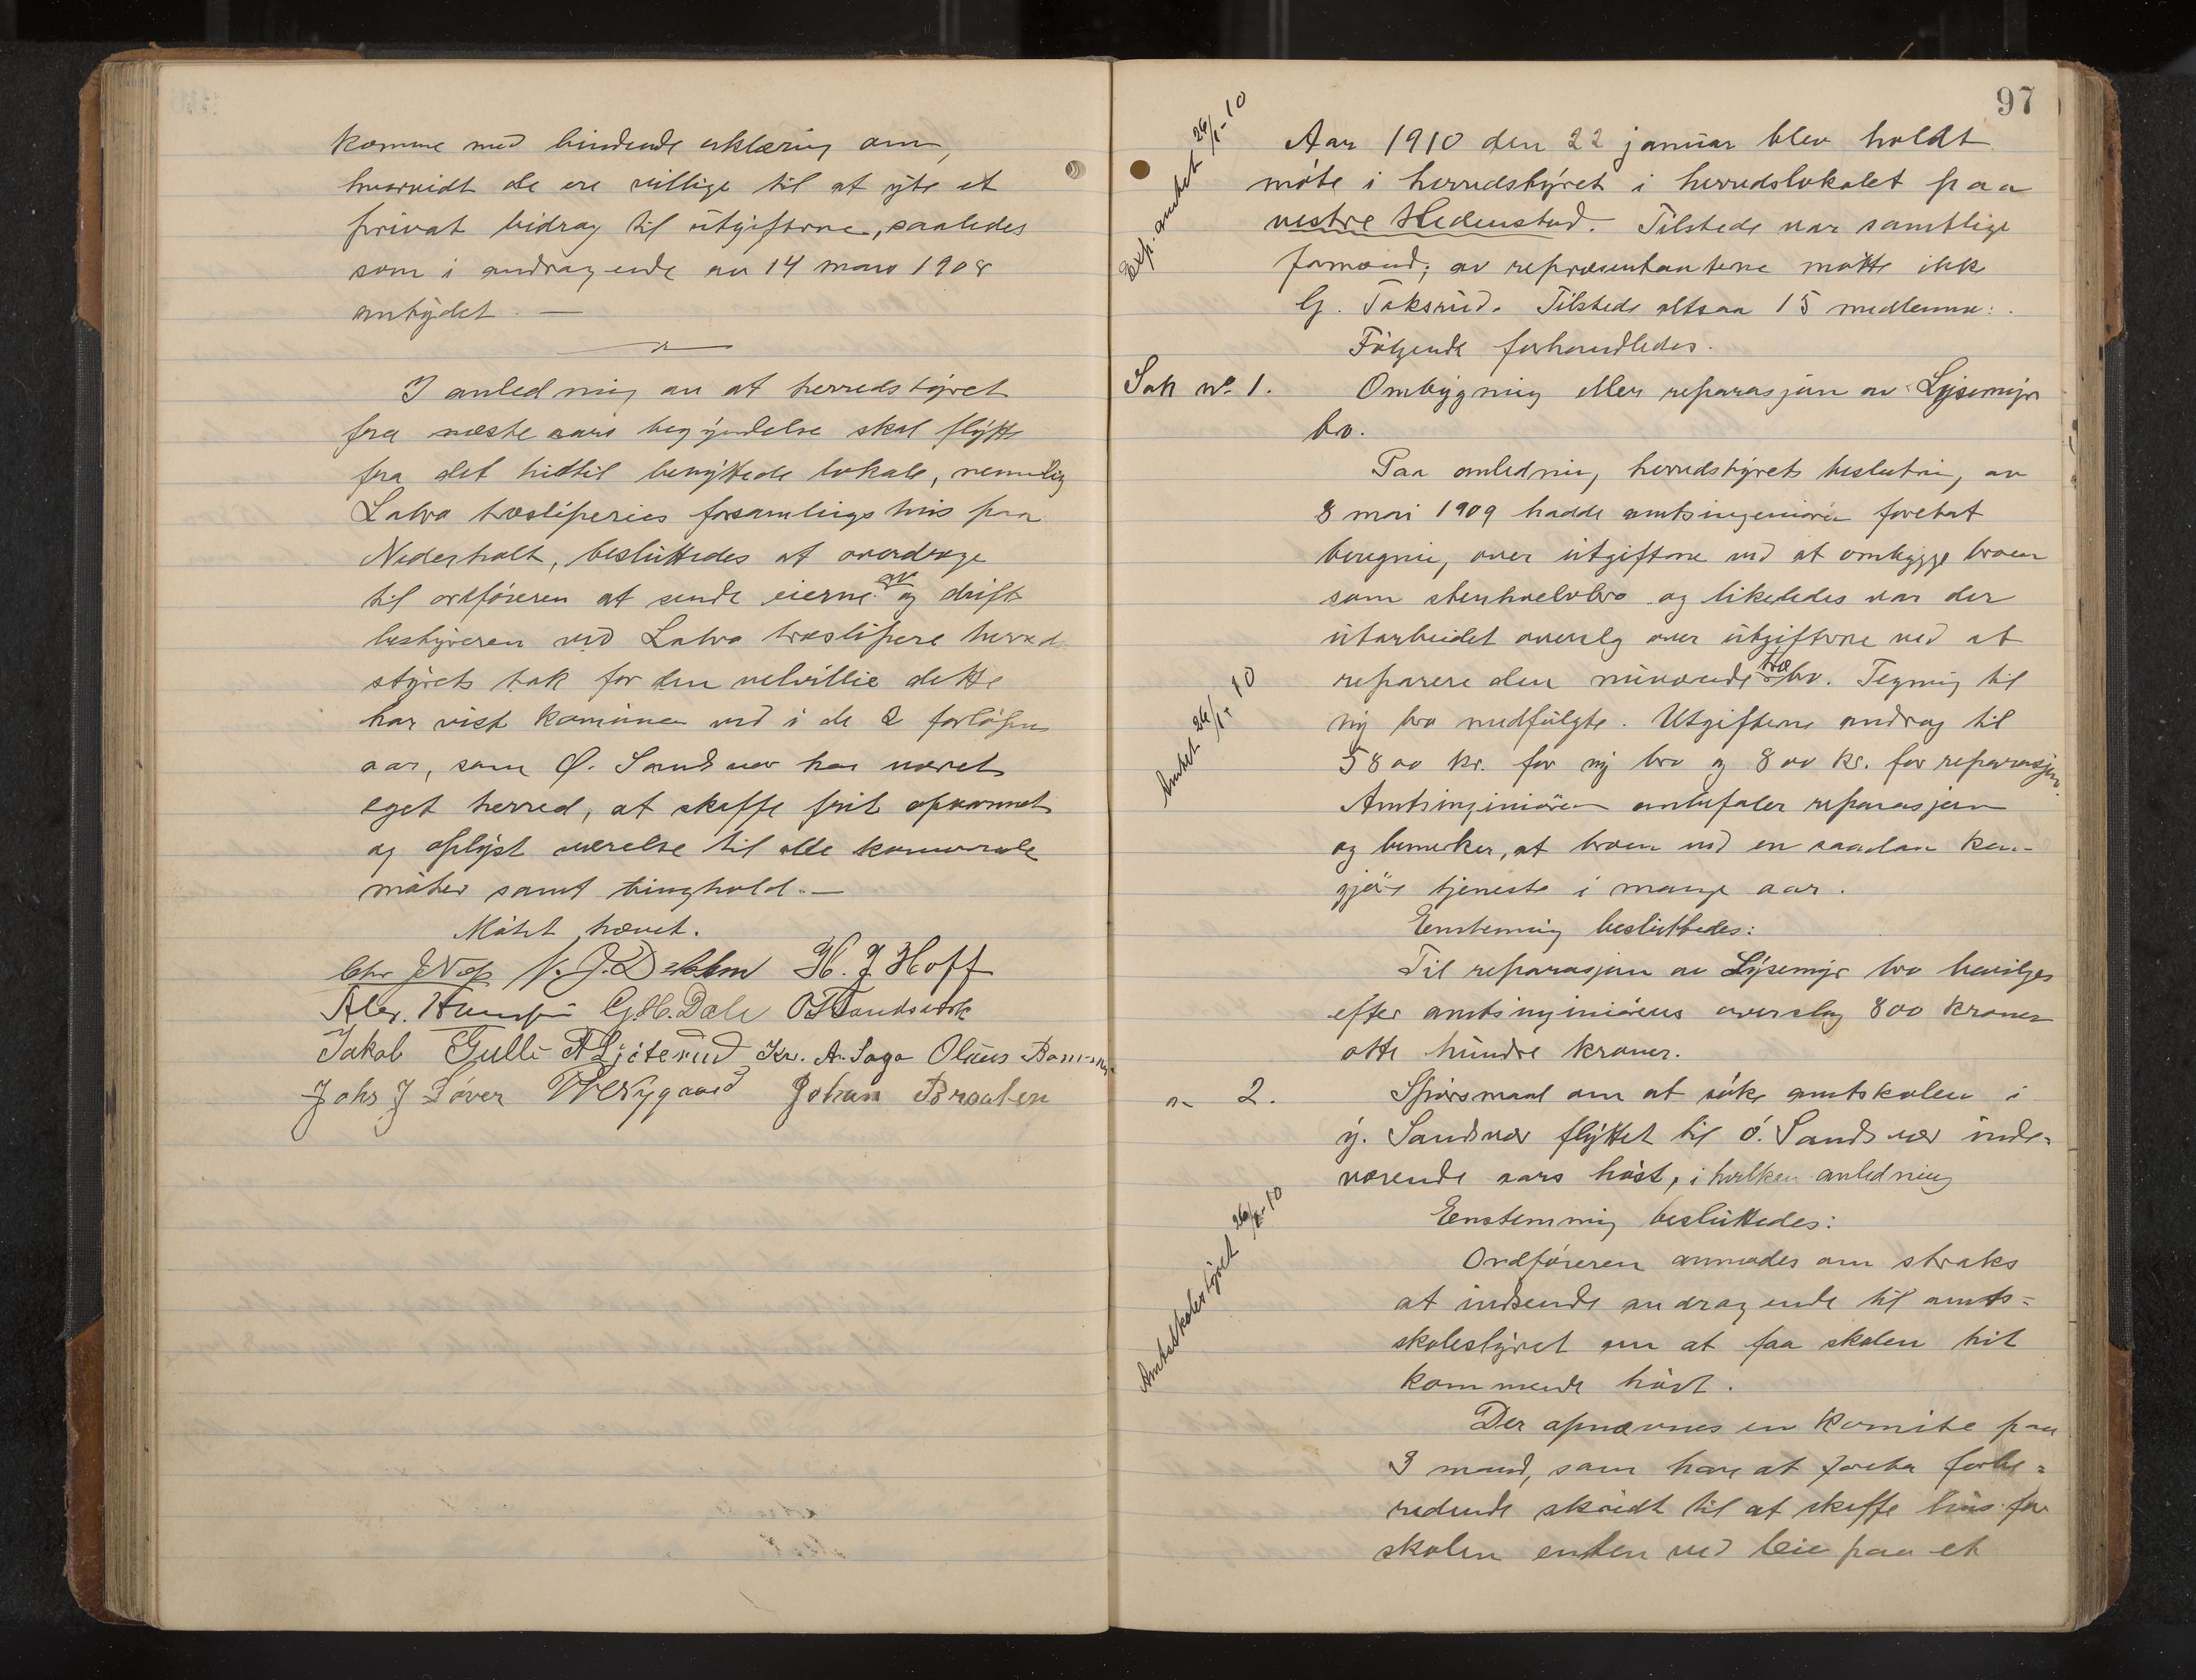 komme med bindende erklæring om,
hvorvidt de ere villige til at yte et
privat bidrag til utgifterne, saaledes
som i andragende av 14 mars 1908
antydet. —
I anledning av at herredstyret
fra næste aars begyndelse skal flytte
fra det hidtil benyttede lokale, nemlig
Labro træsliperies forsamlingshus paa
Nederholt, besluttedes at overdrage
til ordföreren at sende eierne av og drift
bestyreren ved Labro træslipere herred
styrets tak for den velvillie dette
har vist kommunen ved i de 2 forløpne
aar, som Ø. Sandsvær har været
eget herred, at skaffe frit opvarmet
og oplyst værelse til alle kommunale
möter samt tinghold. —
Mötet hævet.
H. J. Hoff
G. H. Dale O T Sandsværk
Jakob Gulli Kr. A. Saga Olaus
Johs J Löver Nygaard Johan Braaten
97
Exp. amtet 26/1-10
Aar 1910 den 22 januar blev holdt
möte i herredstyret i herredslokalet paa
vestre Hedenstad. Tilstede var samtlige
formænd; av repræsentanterne mötte ikke
G. Taksrud. Tilstede altsaa 15 medlemmer.
Følgende forhandledes.
Sak no. 1. Ombygning eller reparasjon av Lysemyr
bro.
Paa anledning herredstyrets beslutning av
8 mai 1909 hadde amtsingeniören foretat
beregning over utgifterne ved at ombygge broen
som stenhvelvbro og likeledes var der
utarbeidet overslag over utgifterne ved at
reparere den nuværende træbro. Tegning til
ny bro medfulgte. Utgifterne androg til
Amtet 26/1-10
5800 kr. for ny bro og 800 kr. for reparasjon.
Amtsingeniören anbefaler reparasjon
og bemerker, at broen ved en saadan kan
gjöre tjeneste i mange aar.
Enstemmig besluttedes:
Til reparasjon av Lysemyr bro bevilges
efter amtsingeniörens overslag 800 kroner
otte hundre kroner.
" 2. Spörsmaal om at söke amtskolen i
y. Sandsvær flyttet til ö. Sandsvær inde=
værende aars höst, i hvilken anledning
Enstemmig besluttedes:
Amtsskolestyret 26/1-10
Ordföreren anmodes om straks
at indsende andragende til amts=
skolestyret om at faa skolen hit
kommende höst.
Der opnævnes en komite paa
3 mand, som har at foreta forbe=
redende skridt til at skaffe hus for
skolen enten ved leie paa et